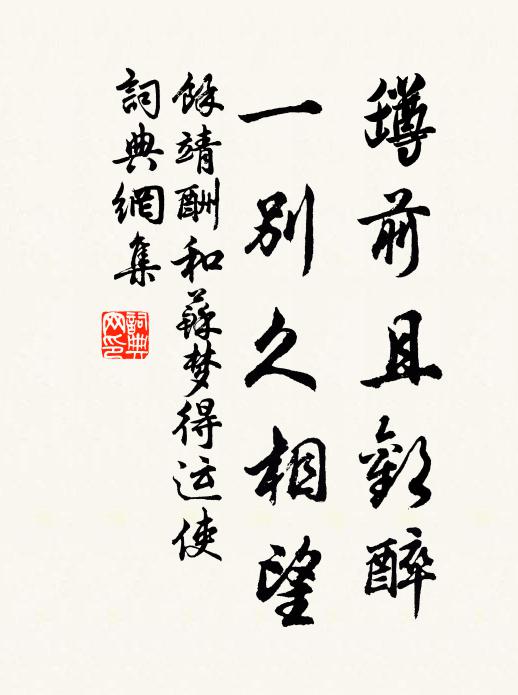 罇前且歡醉
一別久相望
餘靖酬和蘇梦得运使
詞典網集
詞典网印